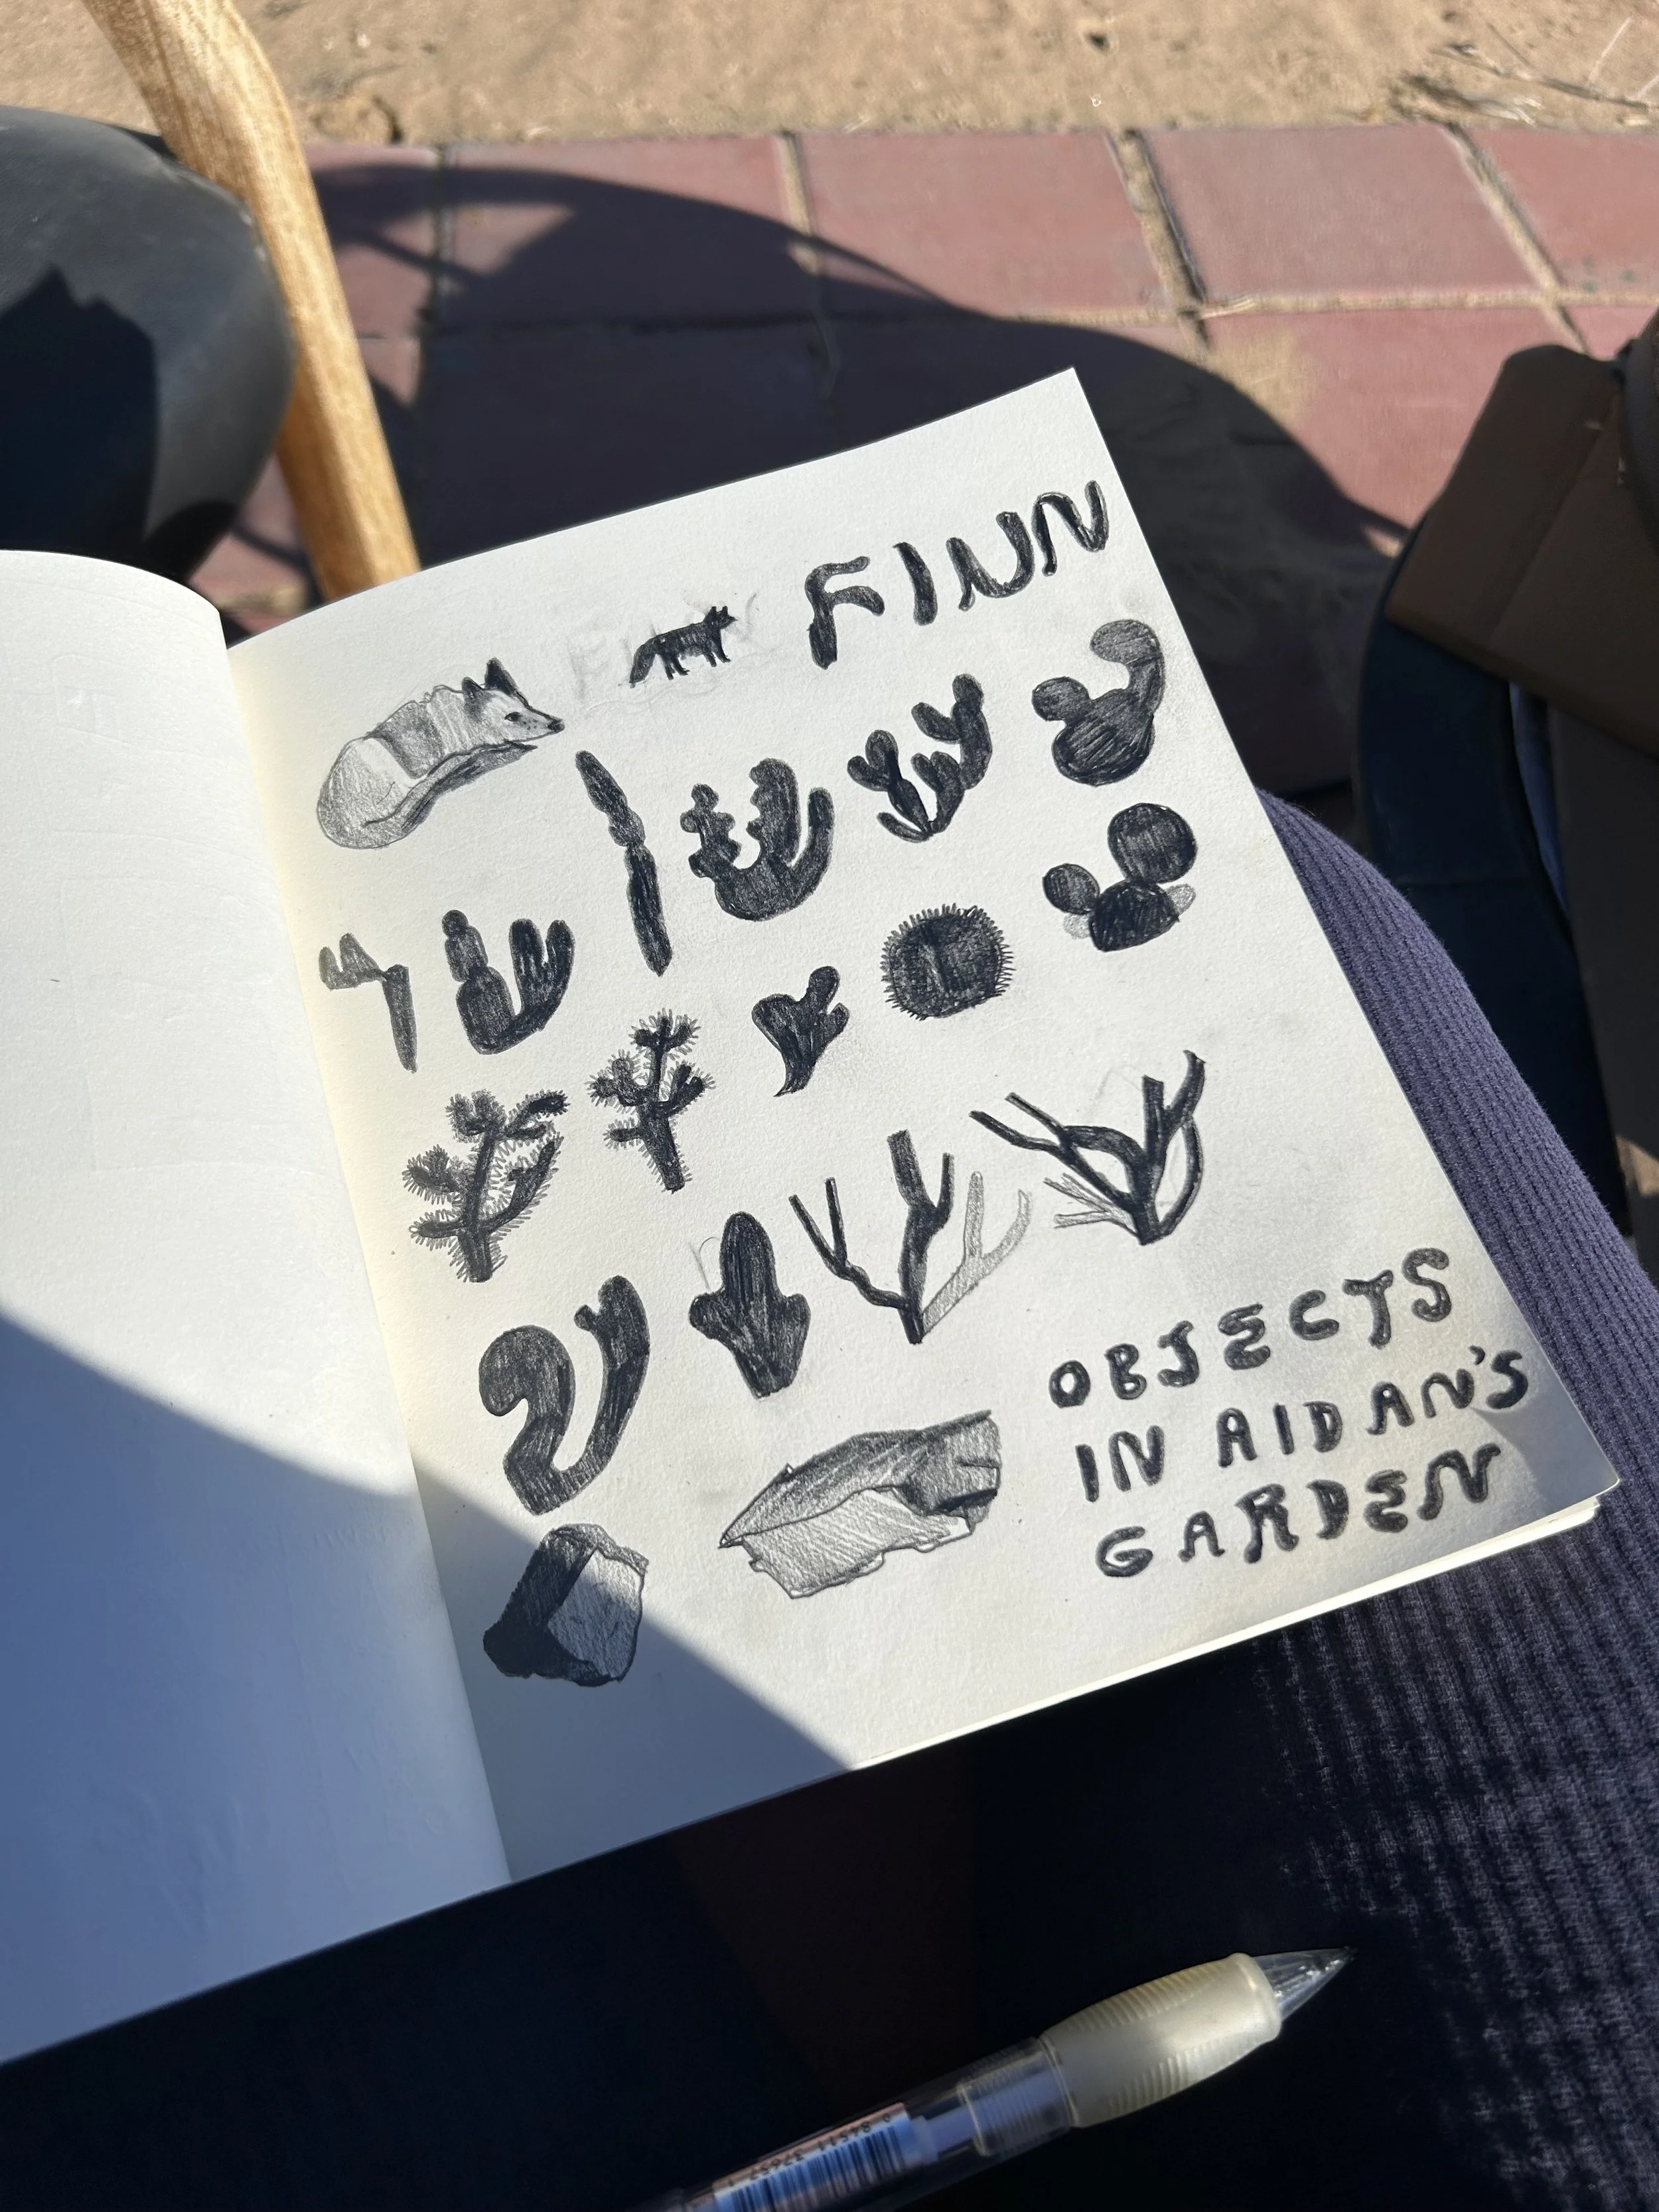 FINN
OBJECTS
IN AIDAN'S
GARDEN